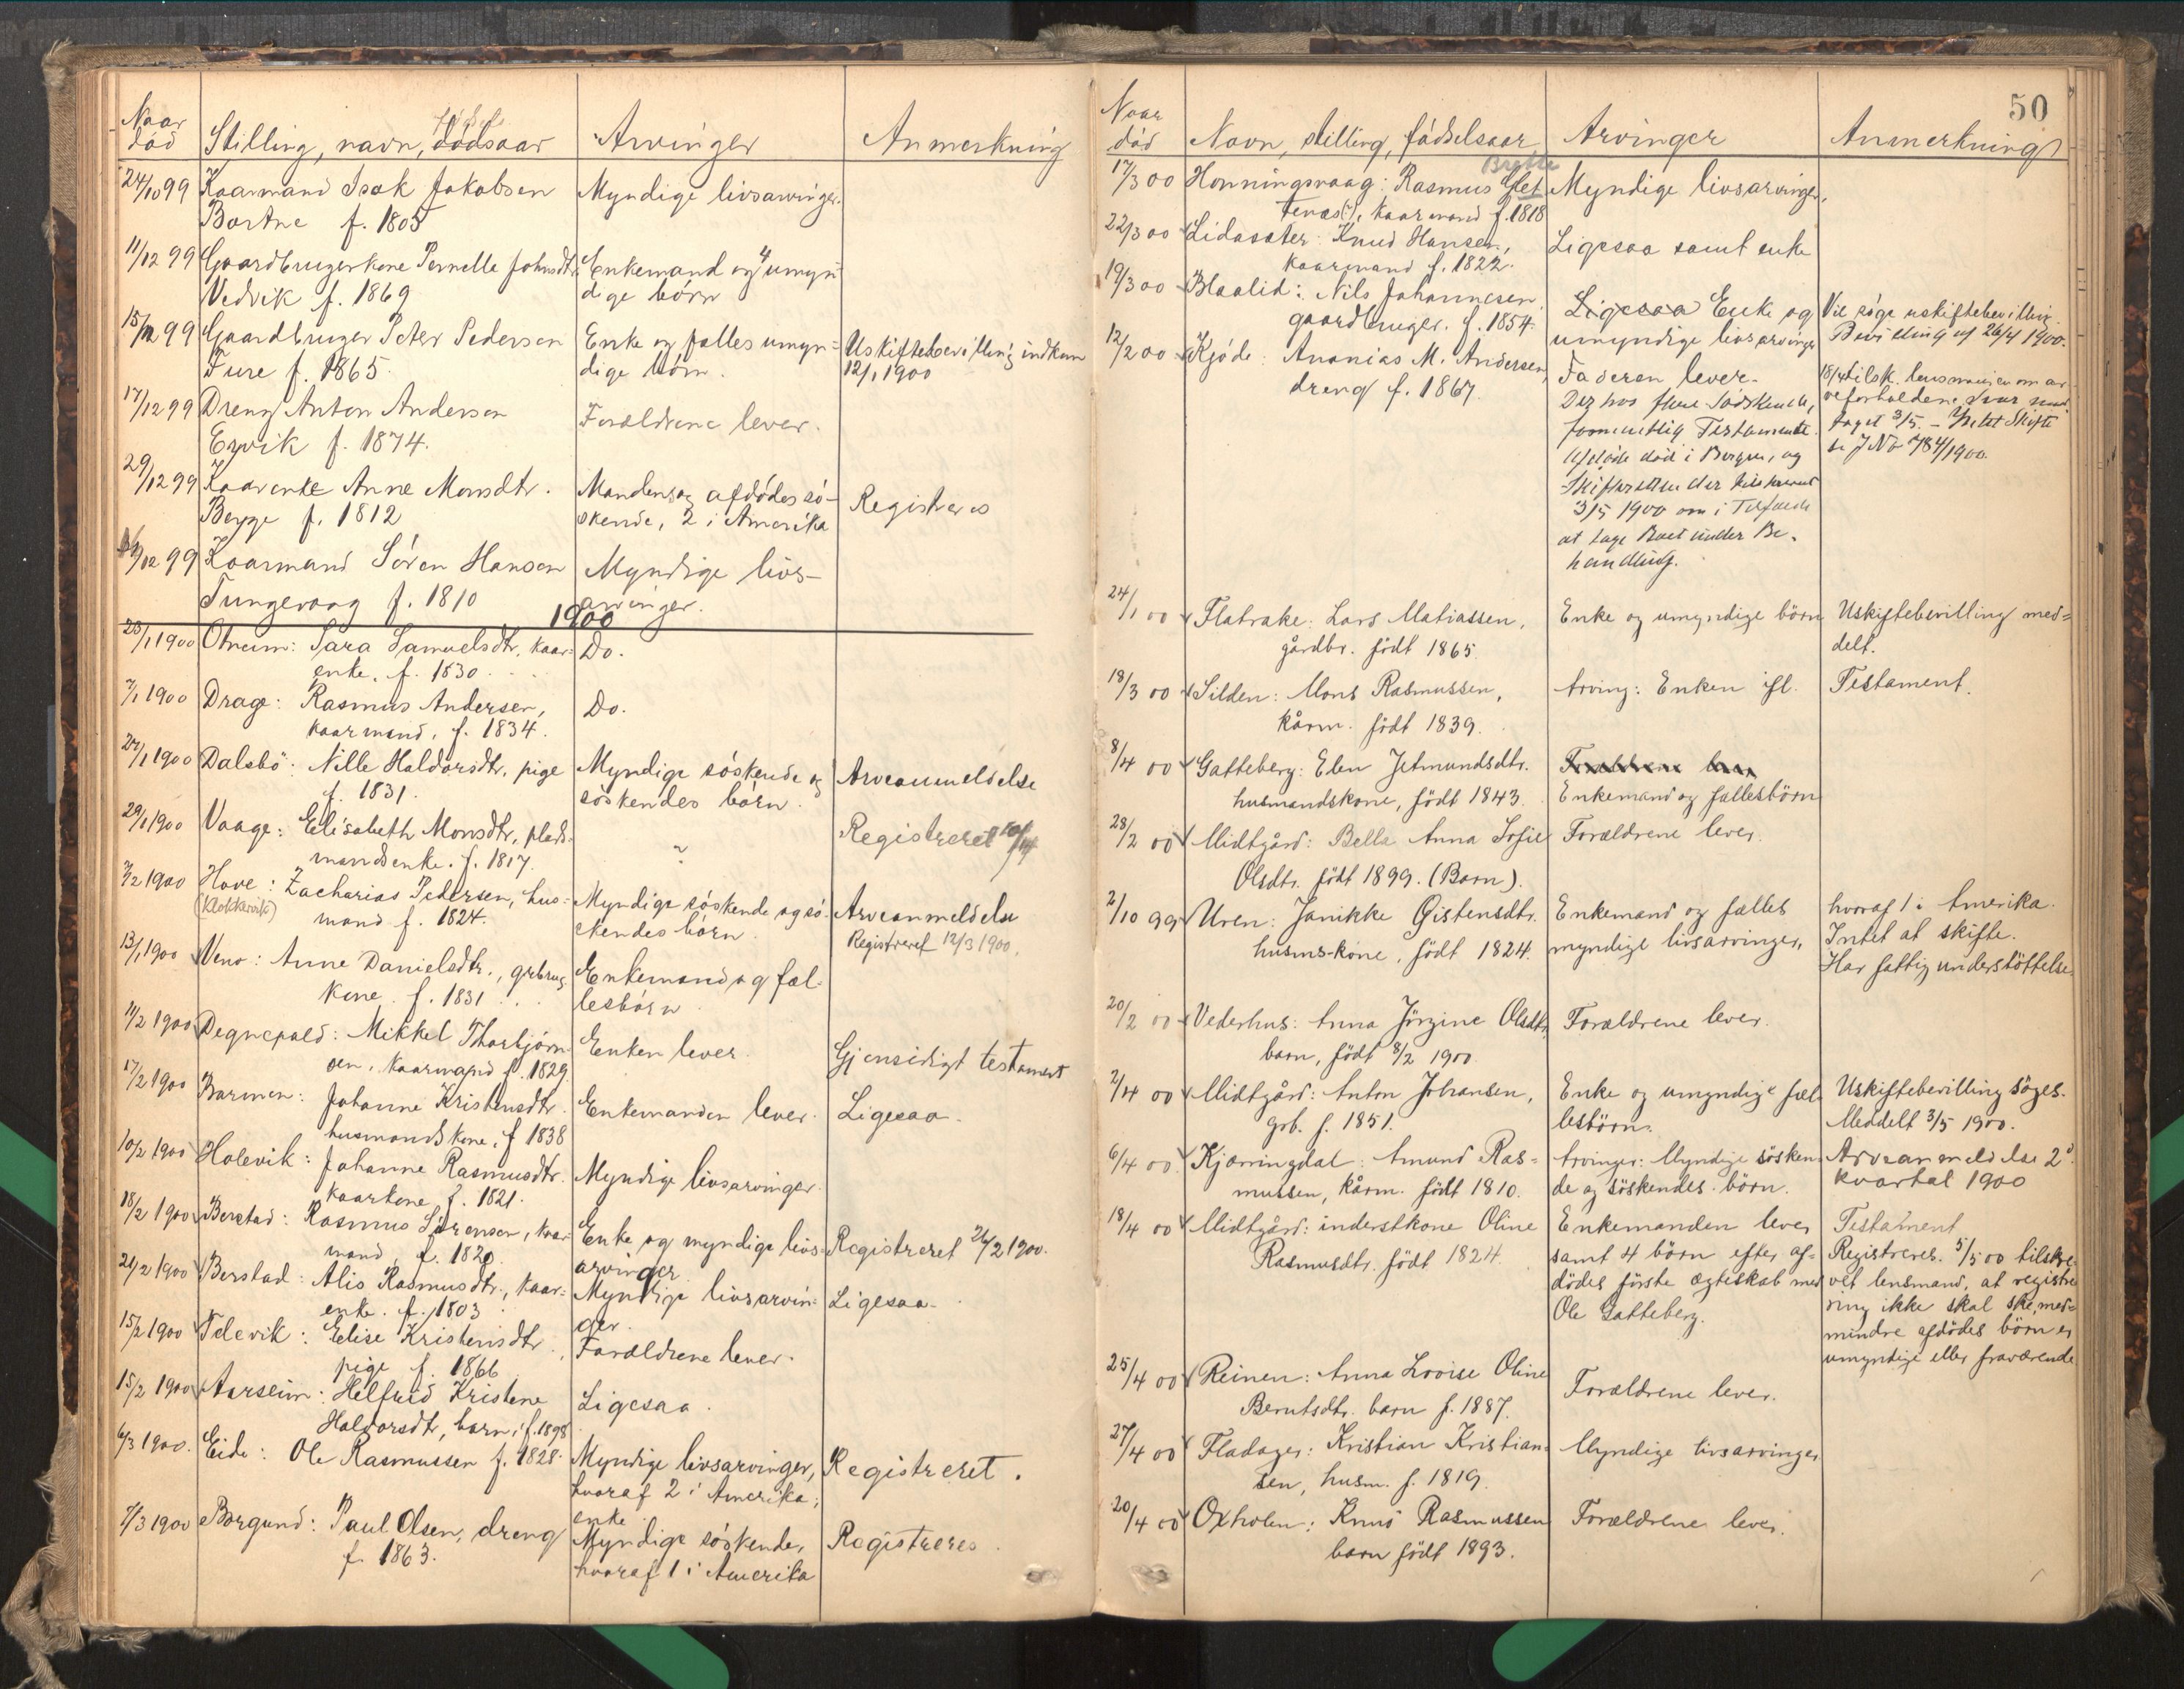 Naar død
Stilling, navn, dødsaar
Arvinger
Anmerkning
24/10 99 Kaarmand Isak Jakobsen
Bortne f. 1805
Myndige livsarvinger.
11/12 99 Gaardbrugerkone Pernelle Johnsdtr.
Vedvik f. 1869
Enkemand og 4 umyn-
dige børn
15/12 99 Gaardbruger Peter Pedersen
Ture f. 1865
Enke og fælles umyn=
dige børn.
Uskiftebevilling indkom
12/1 1900
17/12 99 Dreng Anton Andersen
Ervik f. 1874.
Forældrene lever.
29/12 99 Kaarenke Anne Monsdtr.
Berge f. 1812
Mandens og afdødes sø-
skende, 2 i Amerika
Registreres
/12 99 Kaarmand Søren Hansen
Tungevaag f. 1810
Myndige livs-
arvinger.
1900
23/1 1900 Otneim: Sara Samuelsdtr, kaar=
enke, f. 1830.
Do.
7/1 1900 Drage: Rasmus Andersen,
kaarmand, f. 1834.
Do.
27/1 1900 Dalsbø: Nille Haldorsdtr, pige
f. 1831.
Myndige søskende og
søskendes børn.
Arveanmeldelse
29/1 1900 Vaage: Elisabeth Monsdtr, plads-
mandsenke. f. 1817.
?
Registreret
7/2 1900 Hove: Zacharias Pedersen, hus=
(Klokkervik) mand f. 1824.
Myndige søskende og sø-
skendes børn.
Arveanmeldelse
Registreret 12/3 1900.
13/1 1900 Veno: Anne Danielsdtr., grbrug
kone. f. 1831
Enkemand og fæl-
lesbørn
11/2 1900 Degnepold: Mikkel Thorbjørn-
sen, kaarmand f. 1829.
Enken lever.
Gjensidigt testament
17/2 1900 Barmen: Johanne Kristensdtr.
husmandskone, f 1838
Enkemanden lever.
Ligesaa.
10/2 1900 Holevik: Johanne Rasmusdtr.
kaarkone f. 1821.
Myndige livsarvinger.
18/2 1900 Berstad: Rasmus Sørensen, kaar-
mand, f. 1820.
Enke og myndige livs-
arvinger
Registreret 26/2 1900.
21/2 1900 Berstad: Alis Rasmusdtr., kaar=
enke. f. 1803
Myndige livsarvin-
ger.
Ligesaa.
15/2 1900 Televik: Elise Kristensdtr.
pige f. 1866
Forældrene lever.
15/2 1900 Aarseim: Helfrid Kristene
Haldorsdtr, barn, f. 1898
Ligesaa.
6/3 1900. Eide: Ole Rasmussen f. 1828.
Myndige livsarvinger,
hvoraf 2 i Amerika;
enke
Registreret.
7/3 1900 Borgund: Paul Olsen, dreng
f. 1863.
Myndige søskende,
hvoraf 1 i Amerika
Registreres.
50
Naar død
Navn, stilling, fødselsaar
Arvinger
Anmerkning
17/3 00 Honningsvaag: Rasmus Glet
tenæs(?), kaarmand f. 1818
Myndige livsarvinger,
22/3 00 Lidasæter: Knud Hansen,
kaarmand f. 1822.
Ligesaa samt enke
19/3 00 Blaalid: Nils Johannesen,
gaardbruger. f. 1854.
Ligesaa Enke og
umyndige livsarvinger
Vil søge uskiftebevilling.
Bevilling af 26/4 1900.
12/2 00 Kjøde: Ananias M. Andersen,
dreng f. 1867.
Faderen lever.
Dog hos flere Sødskende,
formentlig Testamente.
Afdøde død i Bergen, og
Skifteretten der tilskrevet
3/5 1900 om i Tilfælde
at tage Boet under Be-
handling.
18/4 tilsk. lensmanden om ar
veforholdene. Svar mod
taget 3/5. - Intet Skifte
se J No 784/1900.
24/1 00 Flatrake: Lars Matiassen,
gårdbr. født 1865.
Enke og umyndige børn
Uskiftebevilling med=
delt.
18/3 00 Silden: Mons Rasmussen,
kårm. født 1839.
Arving: Enken ifl.
Testament.
8/4 00 Gatteberg: Elen Jetmundsdtr.
husmandskone, født 1843.
Enkemand og fællesbørn
28/2 00 Midtgård: Bella Anna Sofie
Olsdtr. født 1899. (Barn).
Forældrene lever.
2/10 99 Uren: Janikke Øistensdtr.
husms-kone, født 1824.
Enkemand og fælles
myndige livsarvinger,
hvoraf 1 i Amerika.
Intet at skifte.
Har fattigunderstøttelse.
20/2 00 Vederhus: Anna Jørgine Olsdtr,
barn, født 8/2 1900.
Forældrene lever.
2/4 00 Midtgård: Anton Johansen,
grb. f. 1851.
Enke og umyndige fæl-
lesbørn.
Uskiftebevilling søges.
Meddelt 3/5 1900.
6/4 00. Kjærringdal: Amund Ras=
mussen, kårm. født 1810.
Arvinger: Myndige søsken-
de og søskendes børn.
Arveanmeldelse 2d
kvartal 1900
18/4 00 Midtgård: inderstkone Oline
Rasmusdtr. født 1824.
Enkemanden lever
samt 4 børn efter af-
dødes første ægteskab med
Ole Gatteberg.
Testament
Registreres. 5/5 00 tilskre-
vet lensmand, at registre
ring ikke skal ske, med-
mindre afdødes børn er
umyndige eller fraværende
25/4 00 Reinen: Anna Lovise Oline
Berntsdtr. barn f. 1887.
Forældrene lever.
27/4 00 Fladager: Kristian Kristian=
sen, husm. f. 1819.
Myndige livsarvinger
20/4 00 Oxholen: Knud Rasmussen
barn født 1893.
Forældrene lever.